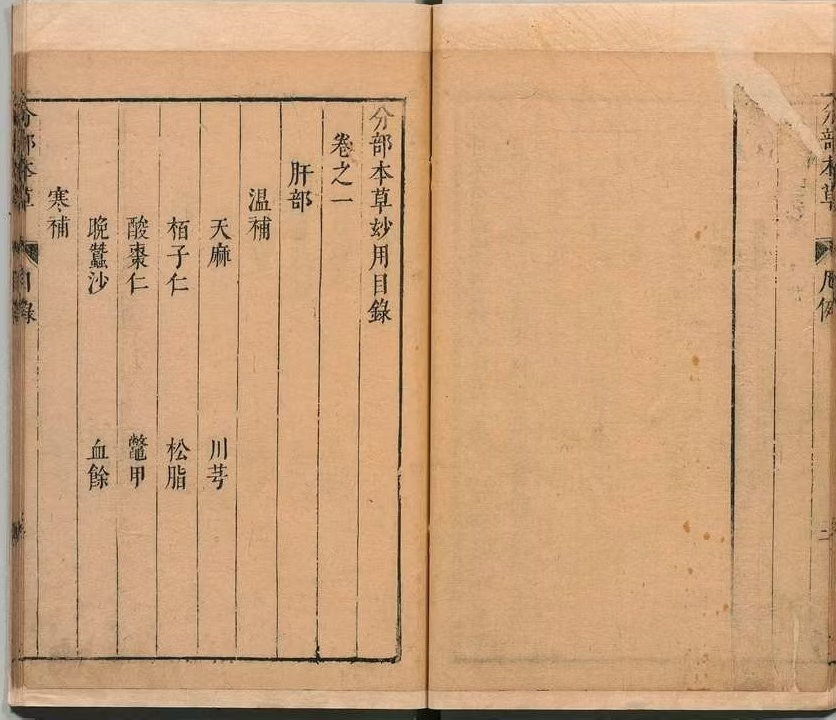 分部本草 凡例
二
分部本草妙用目錄
卷之一
肝部
温補
天麻 川芎
栢子仁 松脂
酸棗仁 鼈甲
晩蠶沙 血餘
寒補
分部本草 目錄